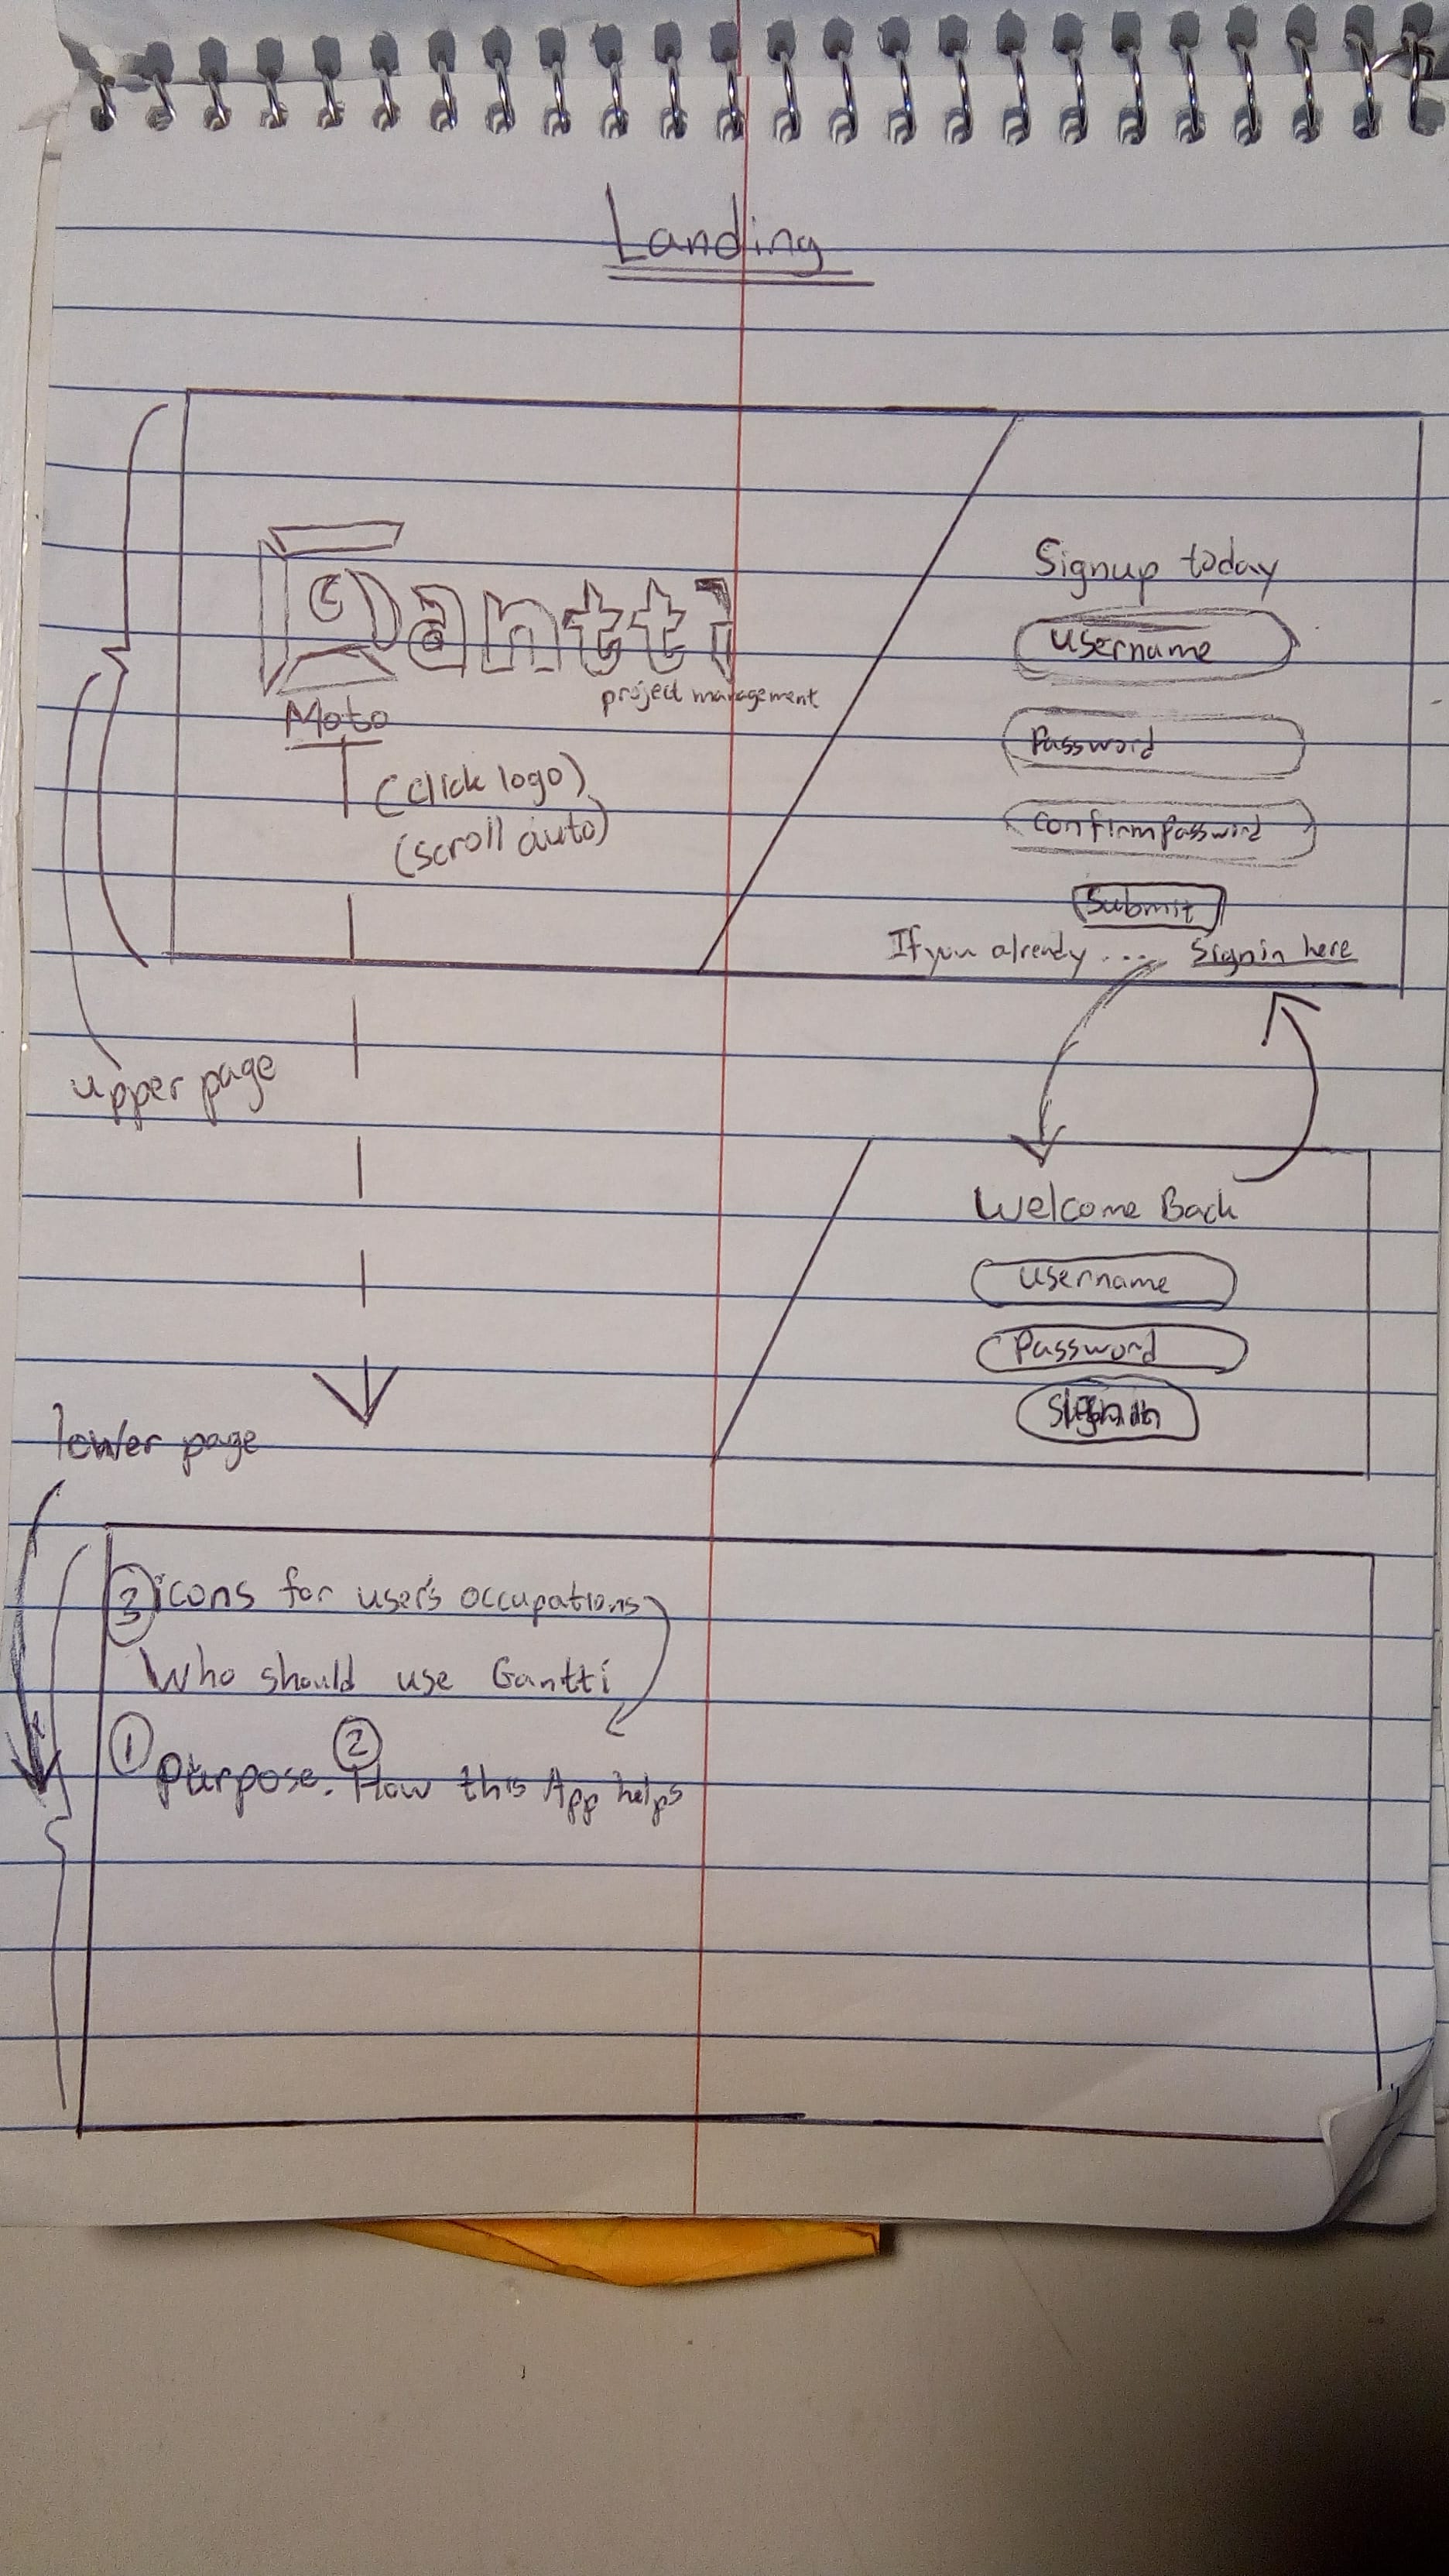 Landing
Gantti
project management
Moto
(click logo)
(scroll auto)
Signup today
Username
Password
Confirm Password
Submit
If you already .... Signin here
upper page
Welcome Back
Username
Password
lower page
③ icons for user's occupations
Who should use Gantti
① Purpose. ② How this App helps